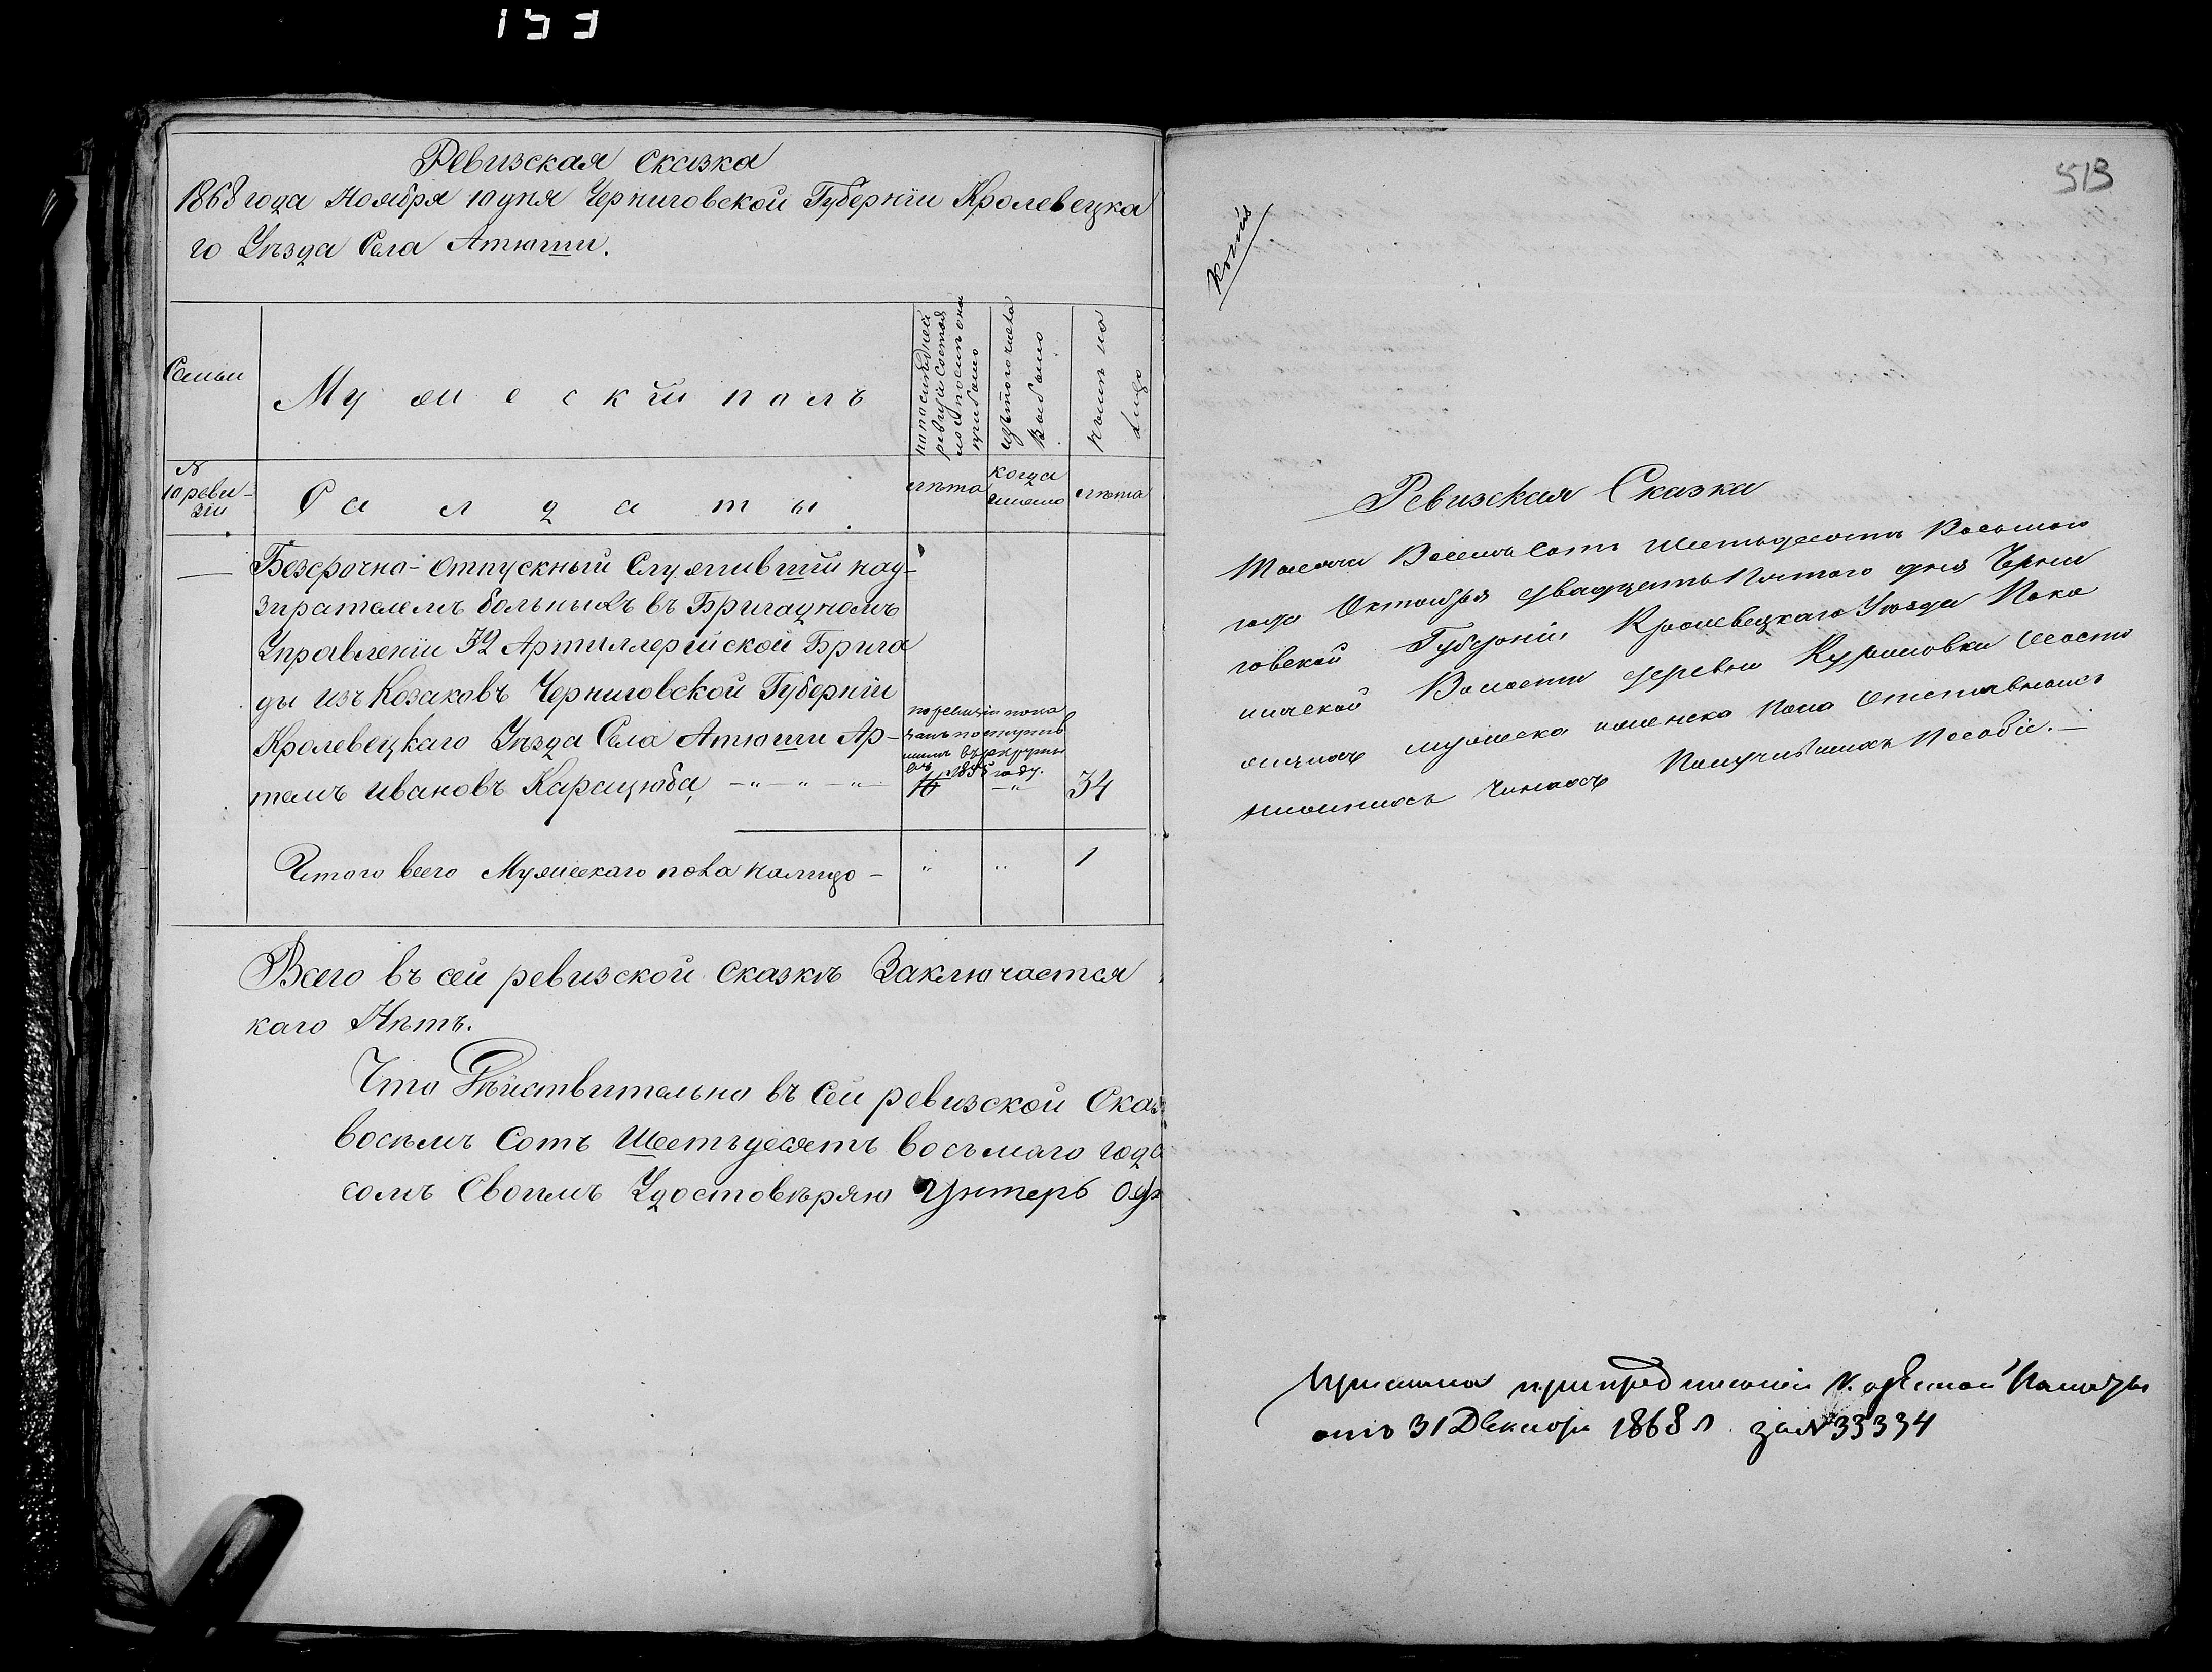 153
Ревизская сказка
1868 года Ноября 10 дня Черниговской Губернiи Кролевецка
го Уѣзда Села Атюши.
Семьи
Мужескiй полъ
по последней
ревизiи состоя
ло и после она
прибыло
изъ того числа
выбыло
нынѣ на
лицо
№
10 реви-
зiи
Салдаты.
лѣта
когда
имено
лѣта
Безсрочно-отпускный Служившiй над-
зирателемъ больныхъ въ Бригадномъ
Управленiи 32 Артиллерiйской Брига
ды изъ Козаковъ Черниговской Губернiи
Кролевецкаго Уѣзда Села Атюши Ар-
темъ Ивановъ Карацюба, -"-"-"-
по ревизiи пока
занъ поступив
шимъ въ рекруты
въ 1855 году.
-"-
34
Итого всего Мужескаго пола налицо -
"
"
1
Всего въ сей ревизской сказкѣ Заключается
каго Нѣтъ.
Что Дѣйствительно въ Сей ревизской Сказ
восемъ Сотъ Шестьдесятъ восьмаго года
сомъ Своимъ Удостовѣряю Унтеръ Оф
513
Копiя
Ревизская Сказка
Тысяча Восемь Сотъ Шестьдесятъ Восьмого
года Октября двадцать Пятого дня Черни
говской Губернiи Кролевецкаго Уѣзда Поко
шичской Волости деревни Куриловки Состо
ящихъ мужеска и женска пола Отставныхъ
нижнихъ Чиновъ Получившихъ Пособiе. -
Прислана при предписанiи Казенной Палаты
отъ 31 Декабря 1868 г. за № 33334